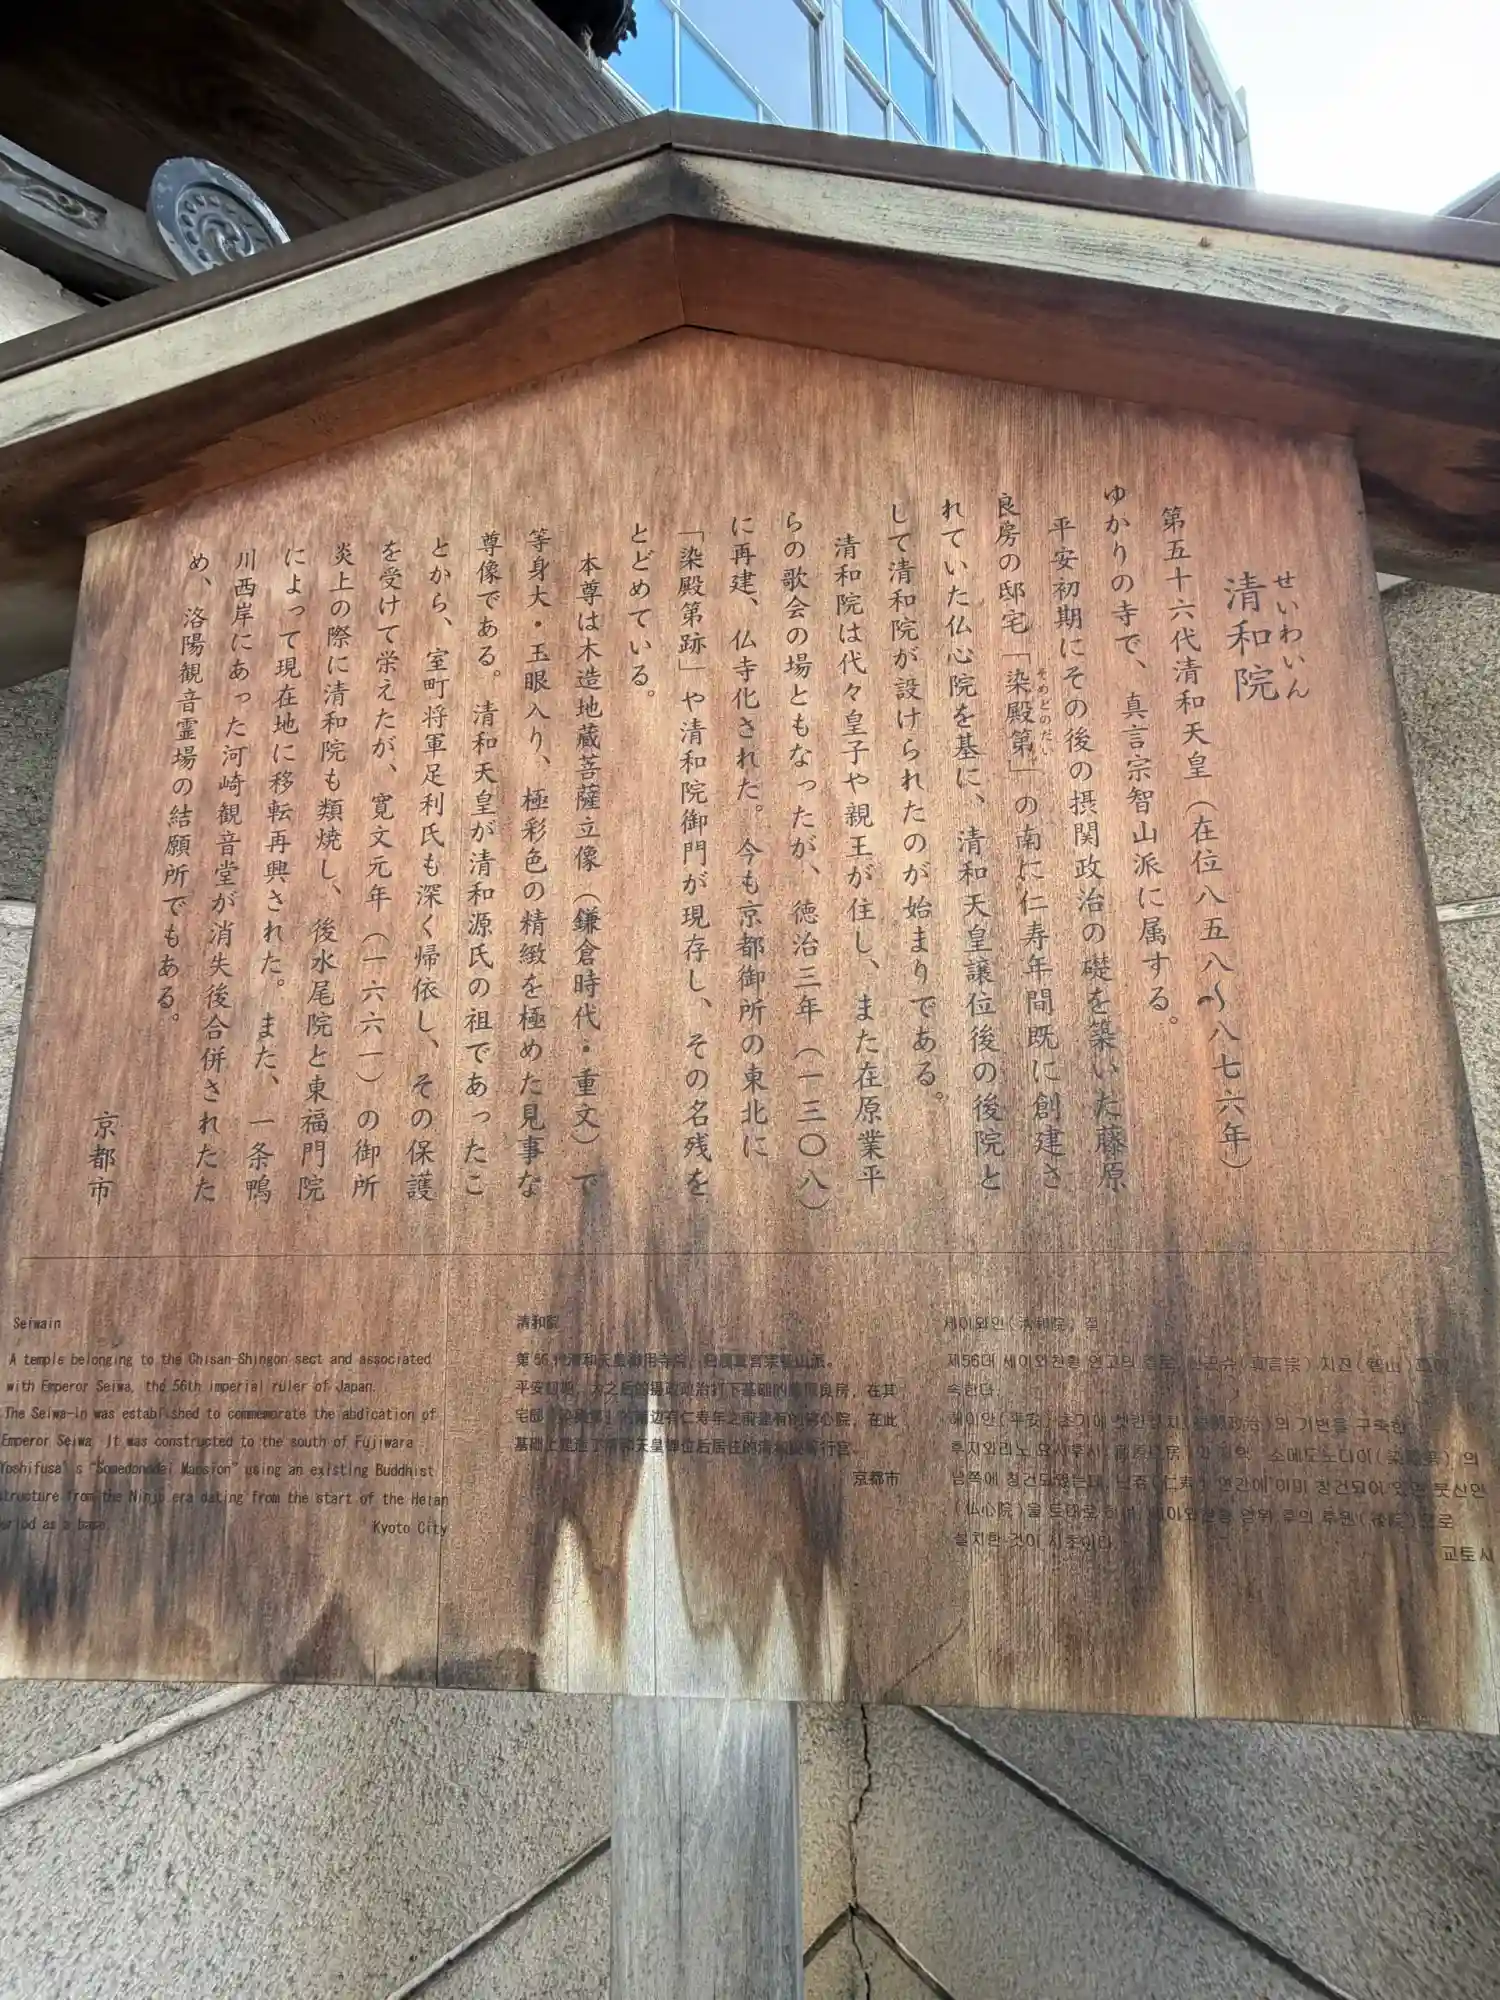 せいわいん
清和院
第五十六代清和天皇（在位八五八〜八七六年）
ゆかりの寺で、真言宗智山派に属する。
平安初期にその後の摂関政治の礎を築いた藤原
良房の邸宅「染殿第」の南に仁寿年間既に創建さ
そめどのだい
れていた仏心院を基に、清和天皇譲位後の後院と
して清和院が設けられたのが始まりである。
清和院は代々皇子や親王が住し、また在原業平
らの歌会の場ともなったが、徳治三年（一三〇八）
に再建、仏寺化された。今も京都御所の東北に
「染殿第跡」や清和院御門が現存し、その名残を
とどめている。
本尊は木造地蔵菩薩立像（鎌倉時代・重文）で
等身大・玉眼入り、極彩色の精緻を極めた見事な
尊像である。清和天皇が清和源氏の祖であったこ
とから、室町将軍足利氏も深く帰依し、その保護
を受けて栄えたが、寛文元年（一六六一）の御所
炎上の際に清和院も類焼し、後水尾院と東福門院
によって現在地に移転再興された。また、一条鴨
川西岸にあった河崎観音堂が消失後合併されたた
め、洛陽観音霊場の結願所でもある。
京都市
Seiwain
A temple belonging to the Chisan-Shingon sect and associated
with Emperor Seiwa, the 56th imperial ruler of Japan.
The Seiwa-in was established to commemorate the abdication of
Emperor Seiwa. It was constructed to the south of Fujiwara
Yoshifusa's "Somedonodai Mansion" using an existing Buddhist
structure from the Ninju era dating from the start of the Heian
as a base.
Kyoto City
清和院
第56代清和天皇御用寺院，归属真言宗智山派。
平安初期，为之后的摄政政治打下基础的藤原良房，在其
宅邸「染殿第」的南边有仁寿年之前建有的佛心院，在此
基础上建造了清和天皇禅位后居住的清和院等行宫。
京都市
세이와인(清和院) 절
제56대 세이와천황 연고의 절로, 신곤슈(真言宗) 치잔(智山)
속한다.
헤이안(平安) 초기에 셋칸정치(摂関政治)의 기반을 구축한
후지와라노 요시후사(藤原良房)의 저택 소메도노다이(染殿第)의
남쪽에 창건되었는데, 닌쥬(仁寿) 연간에 이미 창건되어 있던 붓신인
(仏心院)을 토대로 하여, 세이와천황 양위 후의 후원(後院)으로
설치한 것이 시초이다.
교토시